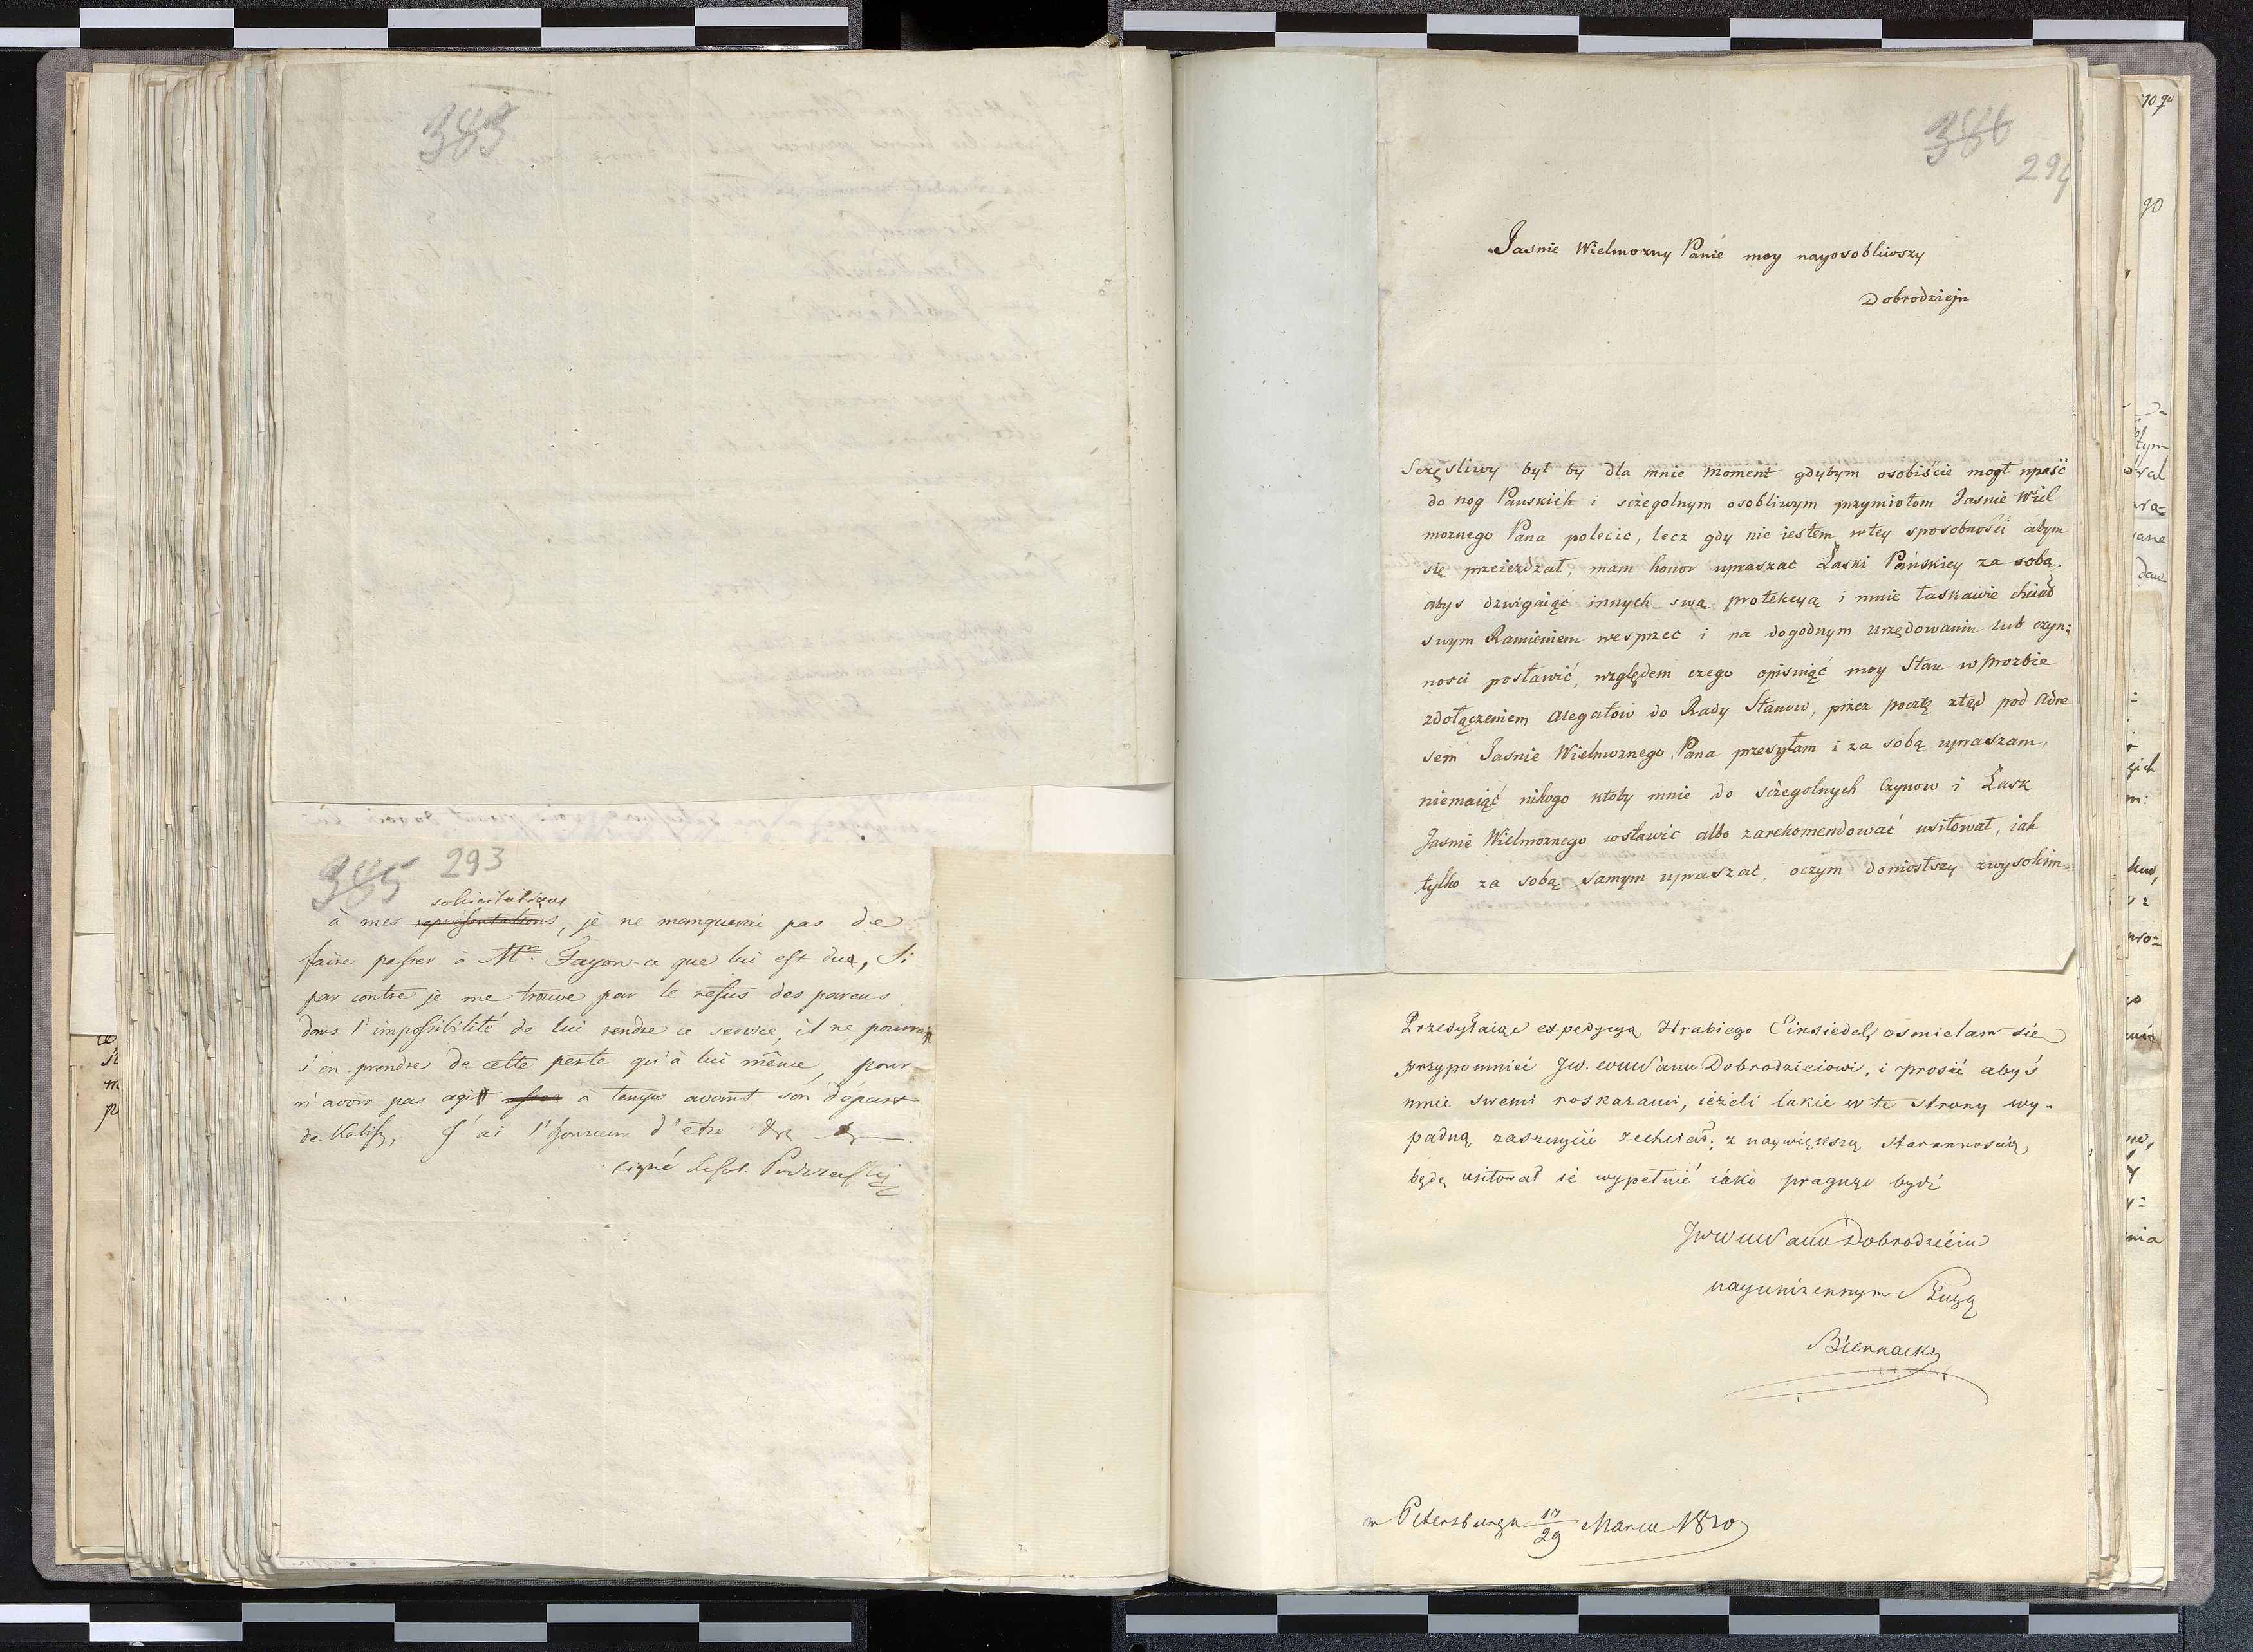 383
385 293
solicitations
à mes représentations, je ne manquerai pas de
faire passer à Mr. Fayon ce que lui est due, Si
par contre je me trouve par le refus des parens
dans l'impossibilité de lui rendre ce service, il ne pourra
s'en prendre de cette perte qu'à lui même, pour
n'avoir pas agit à temps avant son départ
de Kalisz, J'ai l'honneur d'être
signé
386
294
Jasnie Wielmozny Panie moy nayosobliwszy
Dobrodzieju
Sczęsliwy był by dla mnie moment gdybym osobiście mogł upaść
do nog Panskich i sczegolnym osobliwym przymiotom Jasnie Wiel
moznego Pana polecic, lecz gdy nie iestem wtey sposobności abym
się przeiezdzał, mam honor upraszac Łaski Pańskiey za sobą,
abys dzwigaiąć innych swą protekcyą i mnie łaskawie chciał
swym Ramieniem wesprzec i na dogodnym urzędowaniu lub czyn=
nosci postawić, względem czego opisuiąć moy Stan w prozbie
zdołączeniem Alegatow do Rady Stanow, przez pocztę ztąd pod Adre
sem Jasnie Wielmoznego Pana przesyłam i za sobą upraszam,
niemaiąć nikogo ktoby mnie do sczegolnych Czynow i Łask
Jasnie Wielmoznego wstawic albo zarekomendować usiłował, iak
tylko za sobą samym upraszać, oczym doniosłszy zwysokim=
Przesyłaiąc expedycyą Hrabiego Einsiedel, osmielam się
przypomnieć JW. Panu Dobrodzieiowi, i prosić abyś
mnie swemi roskazami, ieżeli iakie w te strony wy-
padną zaszczycić zechciał; z naywiększą starannoscią
będę usiłował ie wypełnić iako pragnący bydź
Dobrodzieia
nayunizennym Sługą
Biernacki
w Petersburgu 17/29 Marca 1820